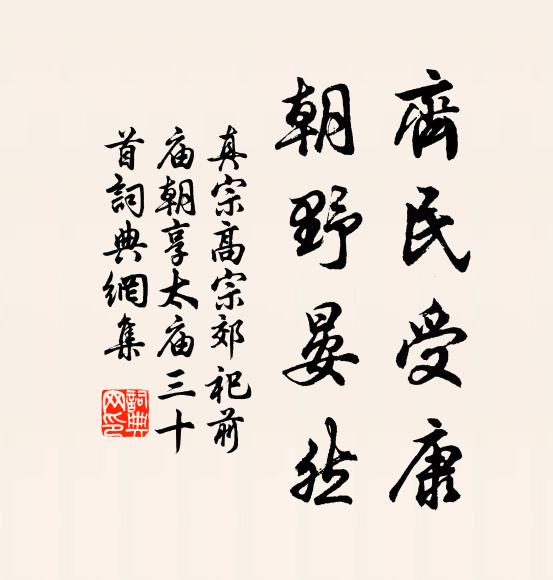 齊民受康
朝野晏然
真宗高宗郊祀前
庙朝享太庙三十
首詞典網集
詞典网印